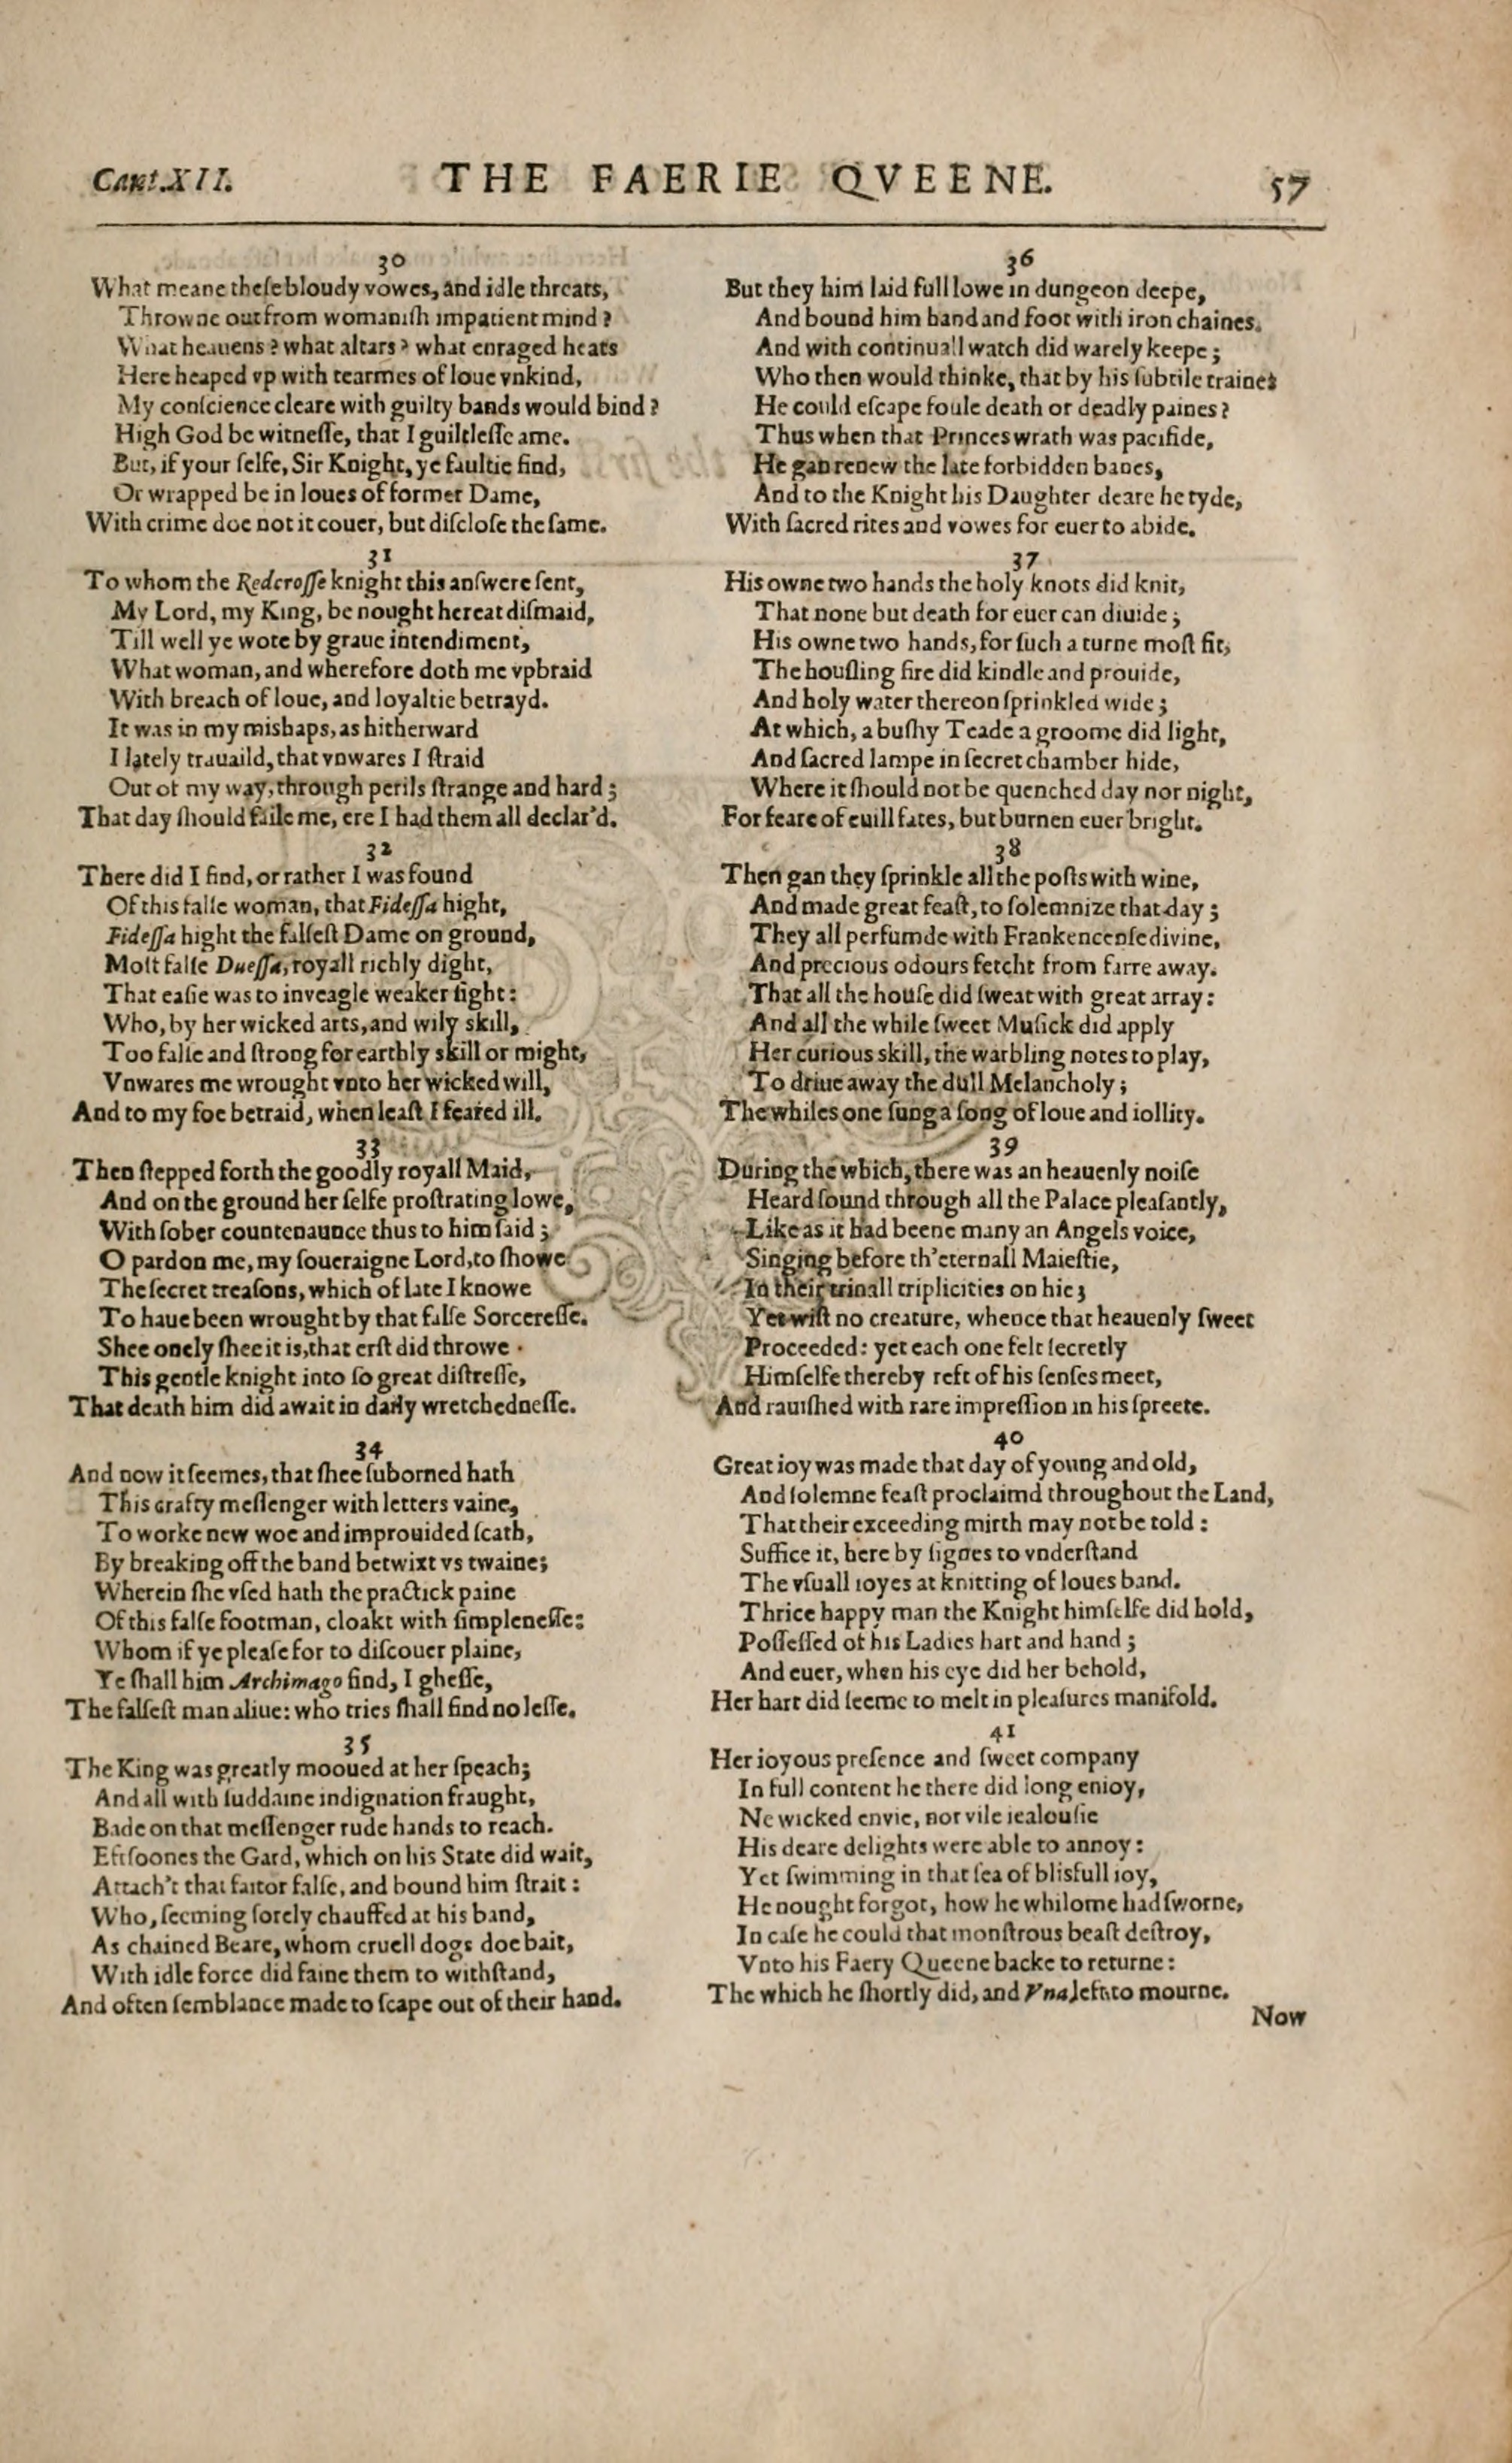 Cant.XII.
THE FAERIE QVEENE.
57
30
What meane theſe bloudy vowes, and idle threats,
Throwne out from womaniſh impatient mind?
What heauens? what altars? what enraged heats
Here heaped vp with tearmes of loue vnkind,
My conſcience cleare with guilty bands would bind?
High God be witneſſe, that I guiltleſſe ame.
But, if your ſelfe, Sir Knight, ye faultie find,
Or wrapped be in loues of former Dame,
With crime doe not it couer, but diſcloſe the ſame.
31
To whom the Redcroſſe knight this anſwere ſent,
My Lord, my King, be nought hereat diſmaid,
Till well ye wote by graue intendiment,
What woman, and wherefore doth me vpbraid
With breach of loue, and loyaltie betrayd.
It was in my mishaps, as hitherward
I lately trauaild, that vnwares I ſtraid
Out of my way, through perils ſtrange and hard;
That day ſhould faile me, ere I had them all declar'd.
32
There did I find, or rather I was found
Of this falſe woman, that Fideſſa hight,
Fideſſa hight the falſeſt Dame on ground,
Moſt falſe Dueſſa, royall richly dight,
That eaſie was to inveagle weaker ſight:
Who, by her wicked arts, and wily skill,
Too falſe and ſtrong for earthly skill or might,
Vnwares me wrought vnto her wicked will,
And to my foe betraid, when leaſt I feared ill.
33
Then ſtepped forth the goodly royall Maid,
And on the ground her ſelfe proſtrating lowe,
With ſober countenaunce thus to him ſaid;
O pardon me, my ſoueraigne Lord, to ſhowe
The ſecret treaſons, which of late I knowe
To haue been wrought by that falſe Sorcereſſe.
Shee onely ſhee it is, that erſt did throwe
This gentle knight into ſo great diſtreſſe,
That death him did await in daily wretchedneſſe.
34
And now it ſeemes, that ſhee ſuborned hath
This crafty meſſenger with letters vaine,
To worke new woe and improuided ſcath,
By breaking off the band betwixt vs twaine;
Wherein ſhe vſed hath the practick paine
Of this falſe footman, cloakt with ſimpleneſſe:
Whom if ye pleaſe for to diſcouer plaine,
Ye ſhall him Archimago find, I gheſſe,
The falſeſt man aliue: who tries ſhall find no leſſe.
35
The King was greatly mooued at her ſpeach;
And all with ſuddaine indignation fraught,
Bade on that meſſenger rude hands to reach.
Eftſoones the Gard, which on his State did wait,
Attach't that faitor falſe, and bound him ſtrait:
Who, ſeeming ſorely chauffed at his band,
As chained Beare, whom cruell dogs doe bait,
With idle force did faine them to withſtand,
And often ſemblance made to ſcape out of their hand.
36
But they him laid full lowe in dungeon deepe,
And bound him hand and foot with iron chaines.
And with continuall watch did warely keepe;
Who then would thinke, that by his ſubtile traines
He could eſcape foule death or deadly paines?
Thus when that Princes wrath was pacifide,
He gan renew the late forbidden banes,
And to the Knight his Daughter deare he tyde,
With ſacred rites and vowes for euer to abide.
37
His owne two hands the holy knots did knit,
That none but death for euer can diuide;
His owne two hands, for ſuch a turne moſt fit,
The houſling fire did kindle and prouide,
And holy water thereon ſprinkled wide;
At which, a buſhy Teade a groome did light,
And ſacred lampe in ſecret chamber hide,
Where it ſhould not be quenched day nor night,
For feare of euill fates, but burnen euer bright.
38
Then gan they ſprinkle all the poſts with wine,
And made great feaſt, to ſolemnize that day;
They all perfumde with Frankencenſe divine,
And precious odours fetcht from farre away.
That all the houſe did ſweat with great array:
And all the while ſweet Muſick did apply
Her curious skill, the warbling notes to play,
To driue away the dull Melancholy;
The whiles one ſung a ſong of loue and iollity.
39
During the which, there was an heauenly noiſe
Heard ſound through all the Palace pleaſantly,
Like as it had beene many an Angels voice,
Singing before th'eternall Maieſtie,
In their trinall triplicities on hie;
Yet wiſt no creature, whence that heauenly ſweet
Proceeded: yet each one felt ſecretly
Himſelfe thereby reft of his ſenſes meet,
And rauiſhed with rare impreſſion in his ſpreete.
40
Great ioy was made that day of young and old,
And ſolemne feaſt proclaimd throughout the Land,
That their exceeding mirth may not be told:
Suffice it, here by ſignes to vnderſtand
The vſuall ioyes at knitting of loues band.
Thrice happy man the Knight himſelfe did hold,
Poſſeſſed of his Ladies hart and hand;
And euer, when his eye did her behold,
Her hart did ſeeme to melt in pleaſures manifold.
41
Her ioyous preſence and ſweet company
In full content he there did long enioy,
Ne wicked envie, nor vile iealouſie
His deare delights were able to annoy:
Yet ſwimming in that ſea of blisfull ioy,
He nought forgot, how he whilome had ſworne,
In caſe he could that monſtrous beaſt deſtroy,
Vnto his Faery Queene backe to returne:
The which he ſhortly did, and Vna left to mourne.
Now